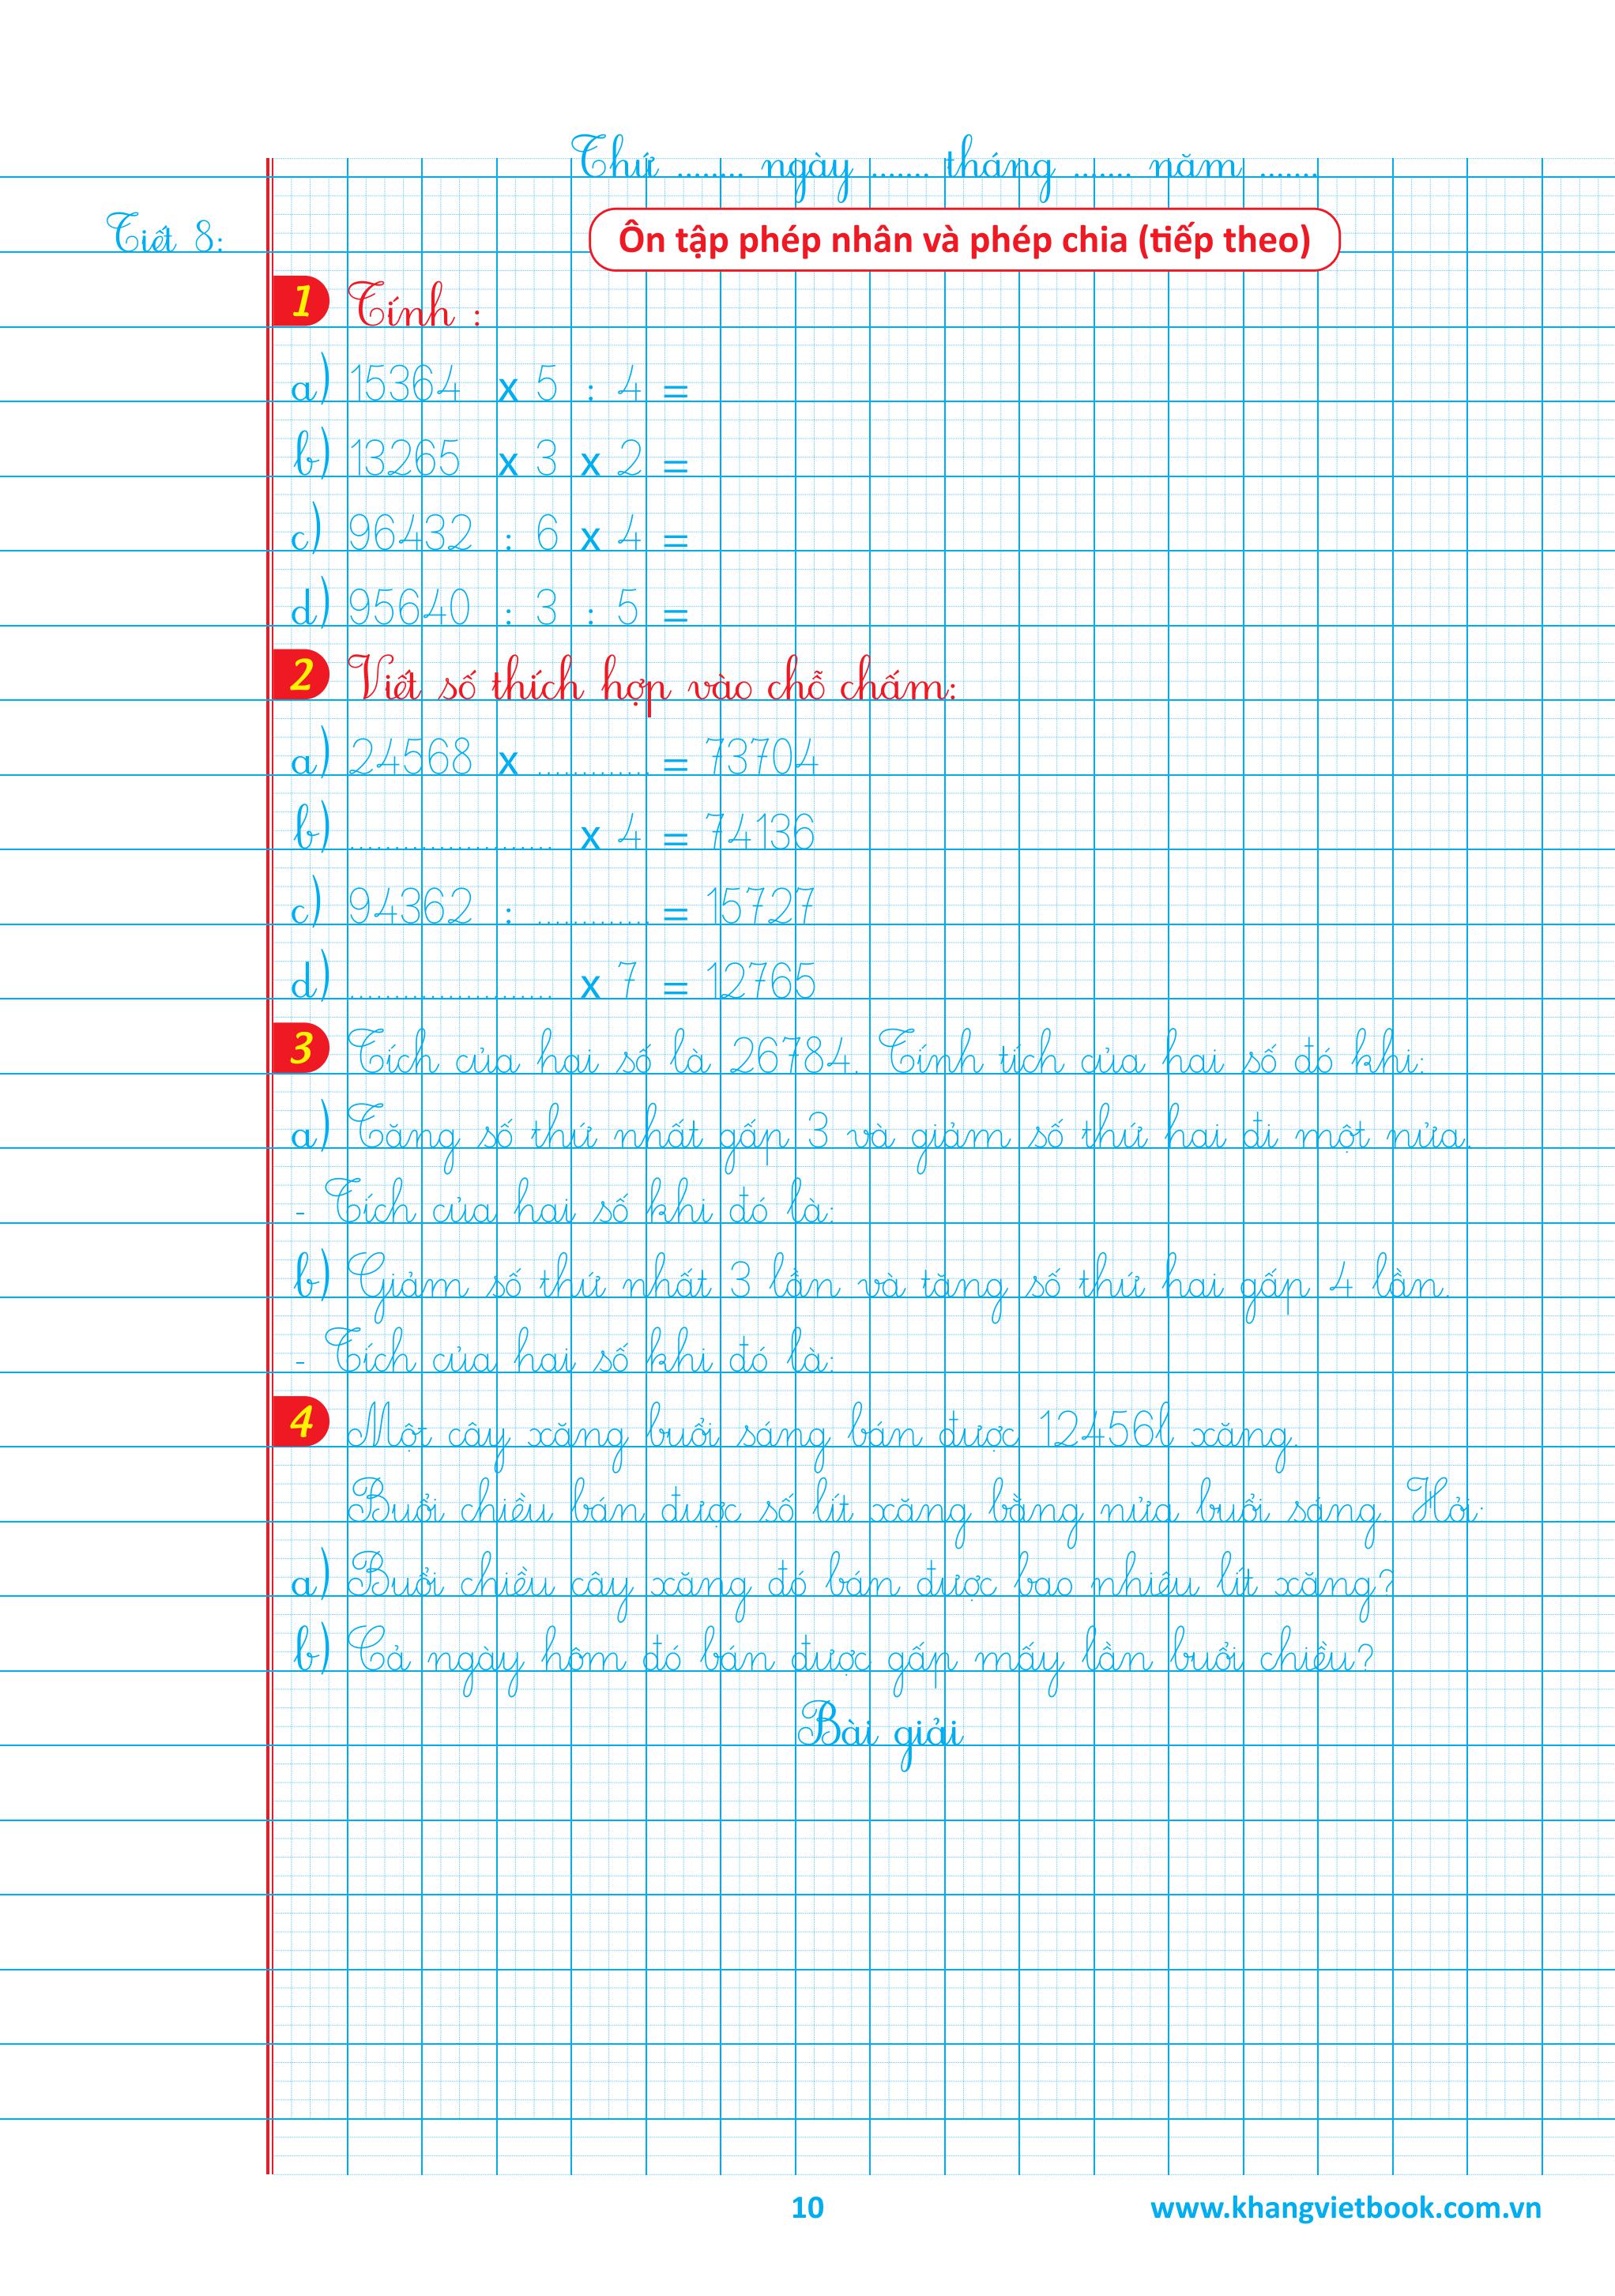 Thứ ........ ngày ....... tháng ....... năm .......
Tiết 8:
Ôn tập phép nhân và phép chia (tiếp theo)
1 Tính :
a) 15364 x 5 : 4 =
b) 13265 x 3 x 2 =
c) 96432 : 6 x 4 =
d) 95640 : 3 : 5 =
2 Viết số thích hợp vào chỗ chấm:
a) 24568 x ............. = 73704
b) ....................... x 4 = 74136
c) 94362 : ............. = 15727
d) ....................... x 7 = 12765
3 Tích của hai số là 26784. Tính tích của hai số đó khi:
a) Tăng số thứ nhất gấp 3 và giảm số thứ hai đi một nửa.
- Tích của hai số khi đó là:
b) Giảm số thứ nhất 3 lần và tăng số thứ hai gấp 4 lần.
- Tích của hai số khi đó là:
4 Một cây xăng buổi sáng bán được 12456l xăng.
Buổi chiều bán được số lít xăng bằng nửa buổi sáng. Hỏi:
a) Buổi chiều cây xăng đó bán được bao nhiêu lít xăng?
b) Cả ngày hôm đó bán được gấp mấy lần buổi chiều?
Bài giải
10
www.khangvietbook.com.vn